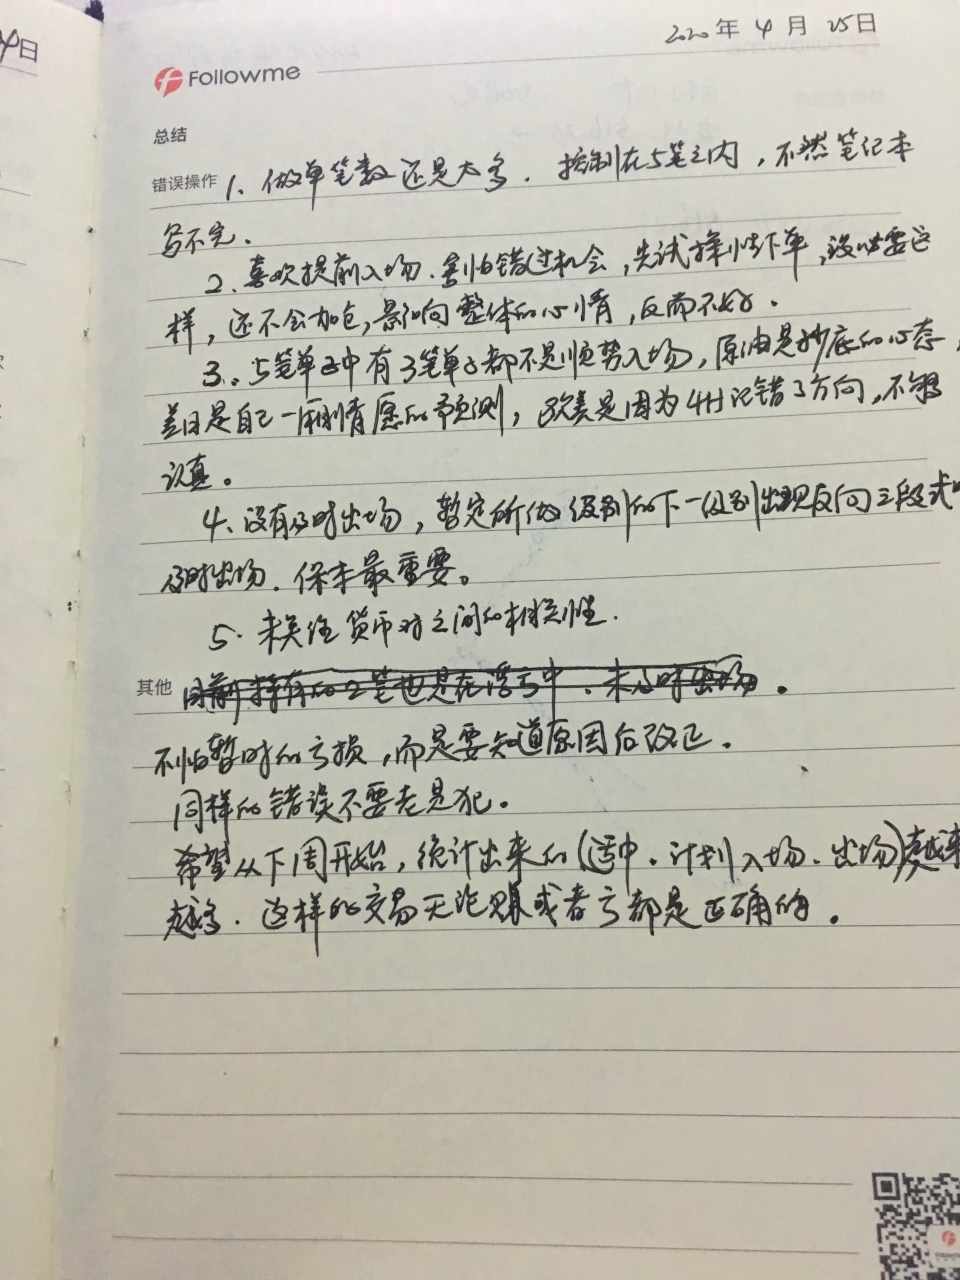 日
2020年 4 月 25日
Followme
总结
错误操作 1、做单笔数还是太多. 控制在5笔之内，不然笔记本
写不完.
2、喜欢提前入场.害怕错过机会，先试探性下单，没必要这
样，还不会加仓,影响整体的心情，反而不好.
3、5笔单子中有3笔单子都不是顺势入场，原油是抄底的心态，
美日是自己一厢情愿的预测，欧美是因为4H记错了方向,不够
认真。
4、没有及时出场，暂定所做级别的下一级别出现反向三段式
及时出场. 保本最重要。
5. 未关注货币对之间的相关性.
其他 目前持有的2笔也是在浮亏中、未及时出场.
不怕暂时的亏损，而是要知道原因后改正.
同样的错误不要老是犯。
希望从下周开始，统计出来的(适中、计划入场、出场)越来
越多. 这样的交易无论赚或者亏都是正确的.